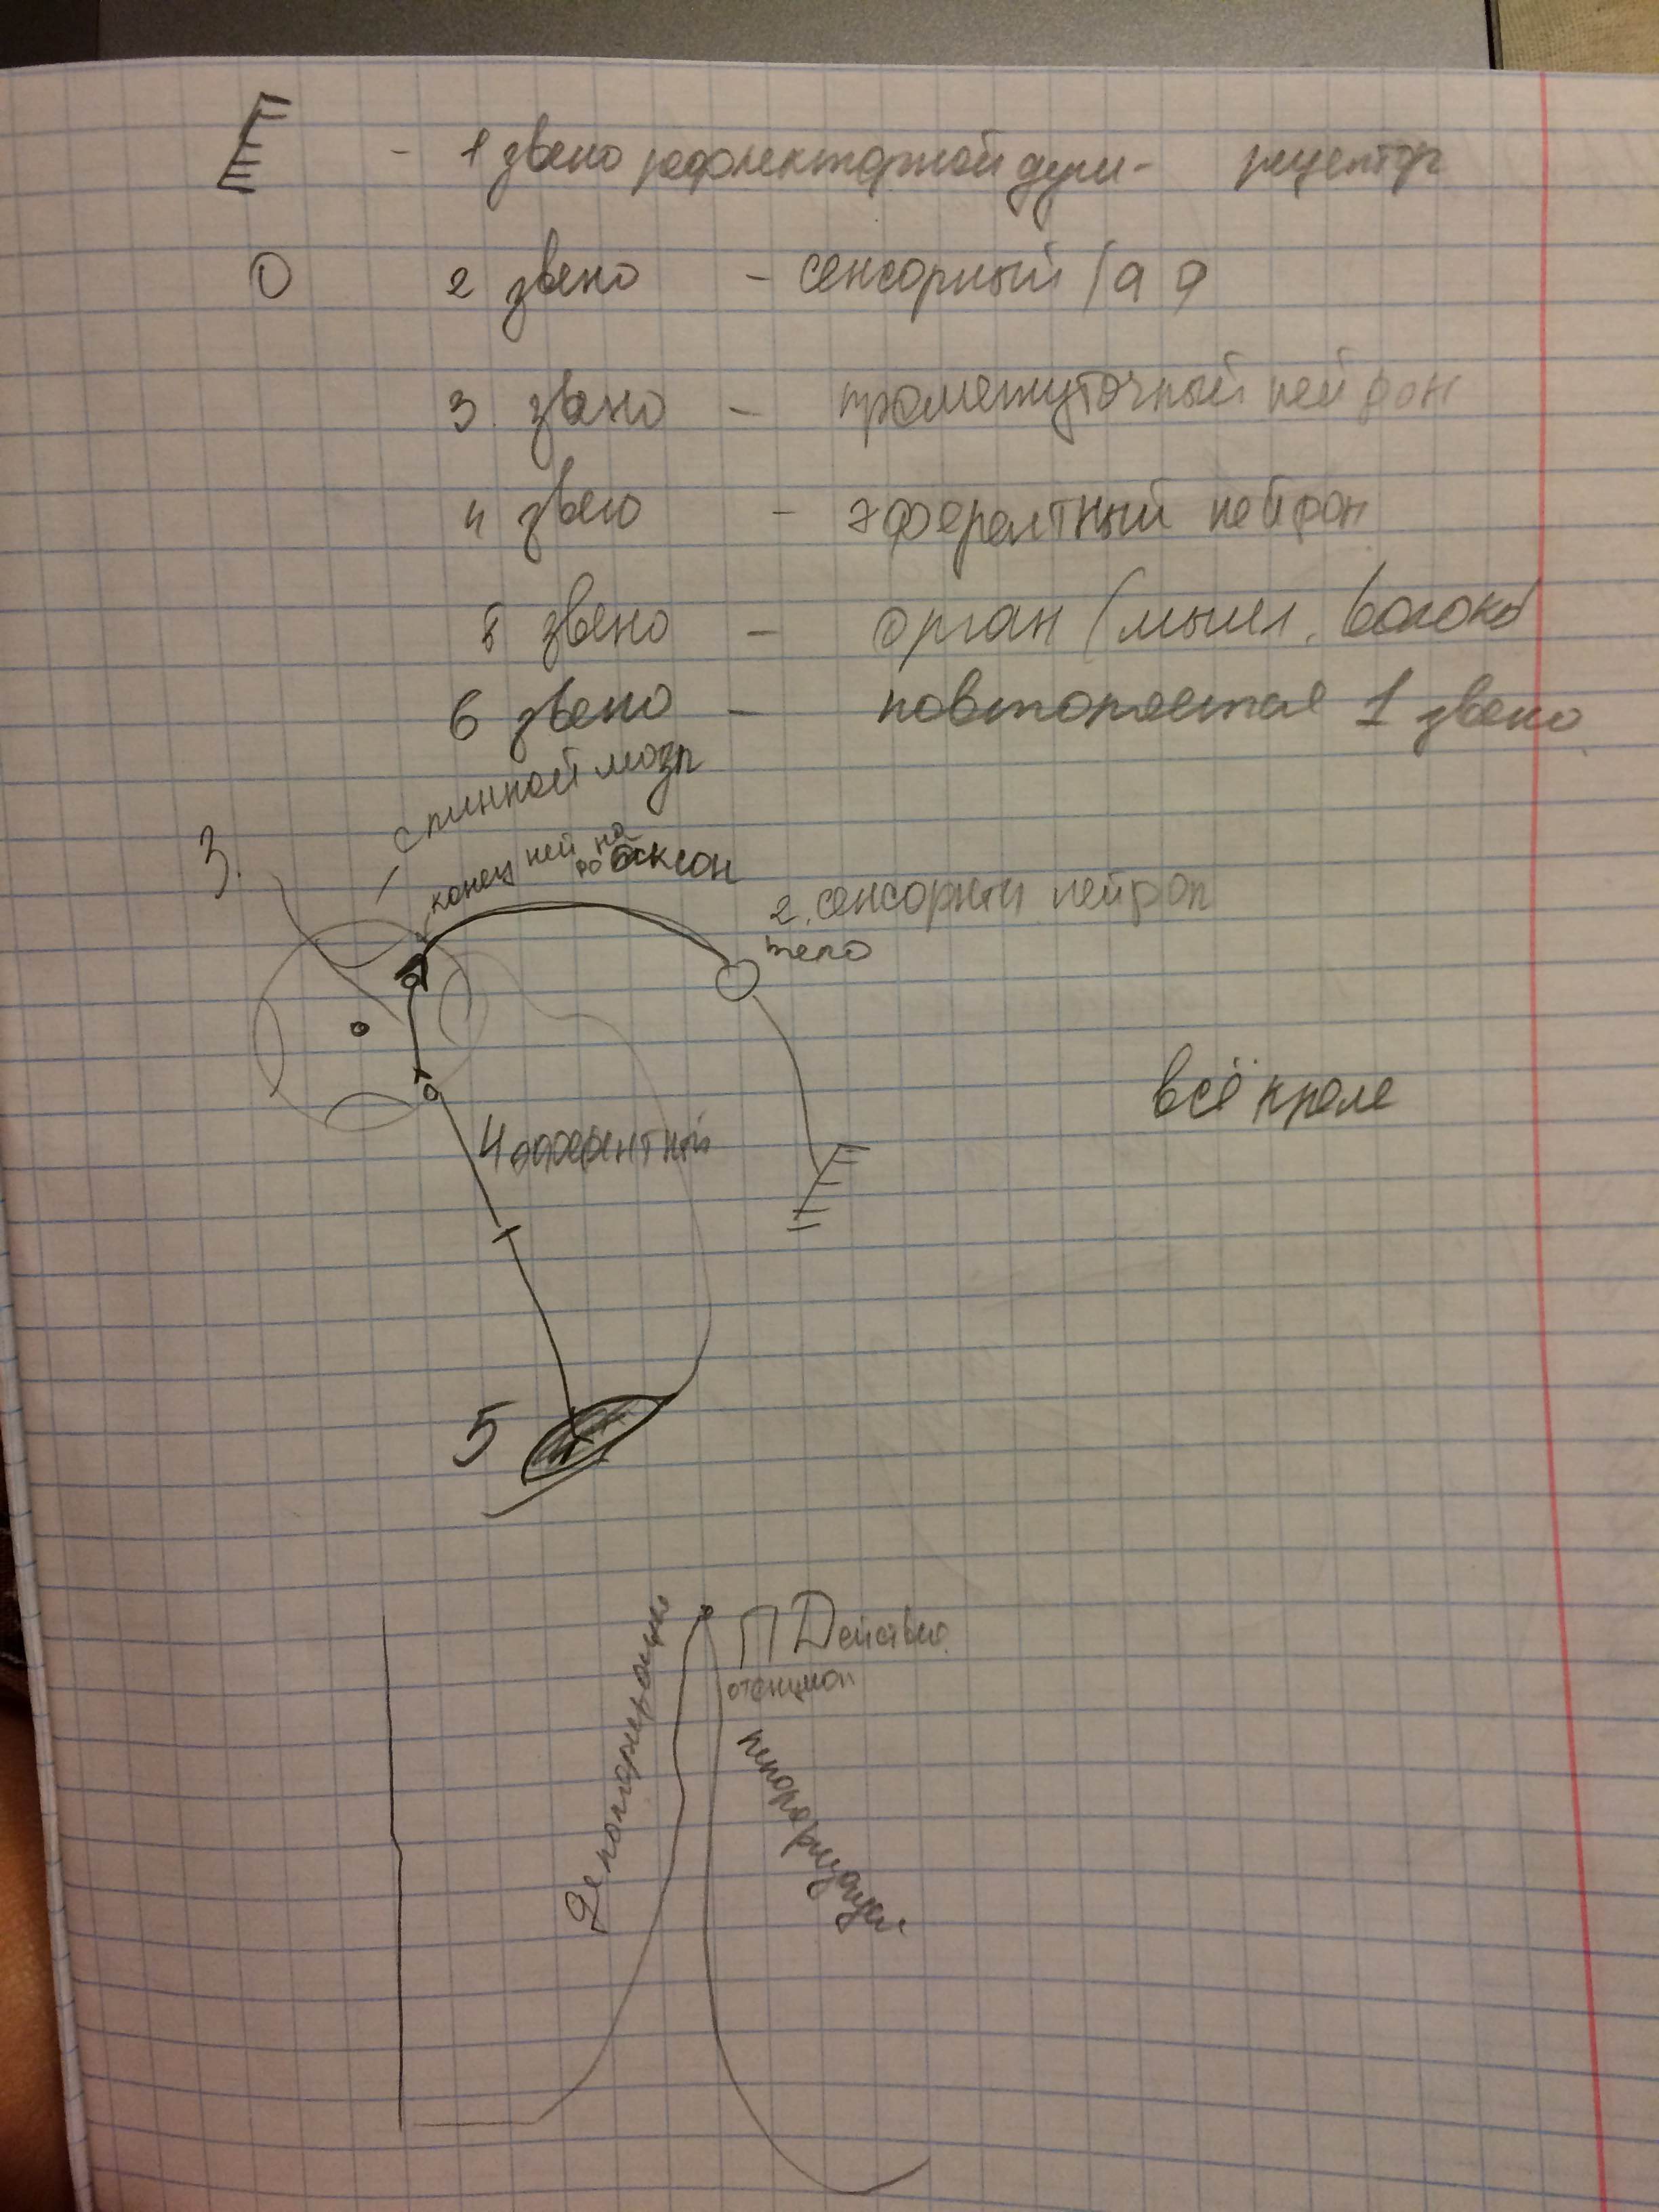 - 1 звено рефлекторной дуги - рецептор
2 звено - сенсорный
3. звено - промежуточный нейрон
4 звено - эферентный нейрон
5 звено - орган (мышц. волокно
6 звено - повторяется 1 звено
- спинной мозг
3.
конец нейрона аксон
2. сенсорный нейрон
тело
всё кроме
4 эфферентный
5
Деполяризация
П Действия
отенциал